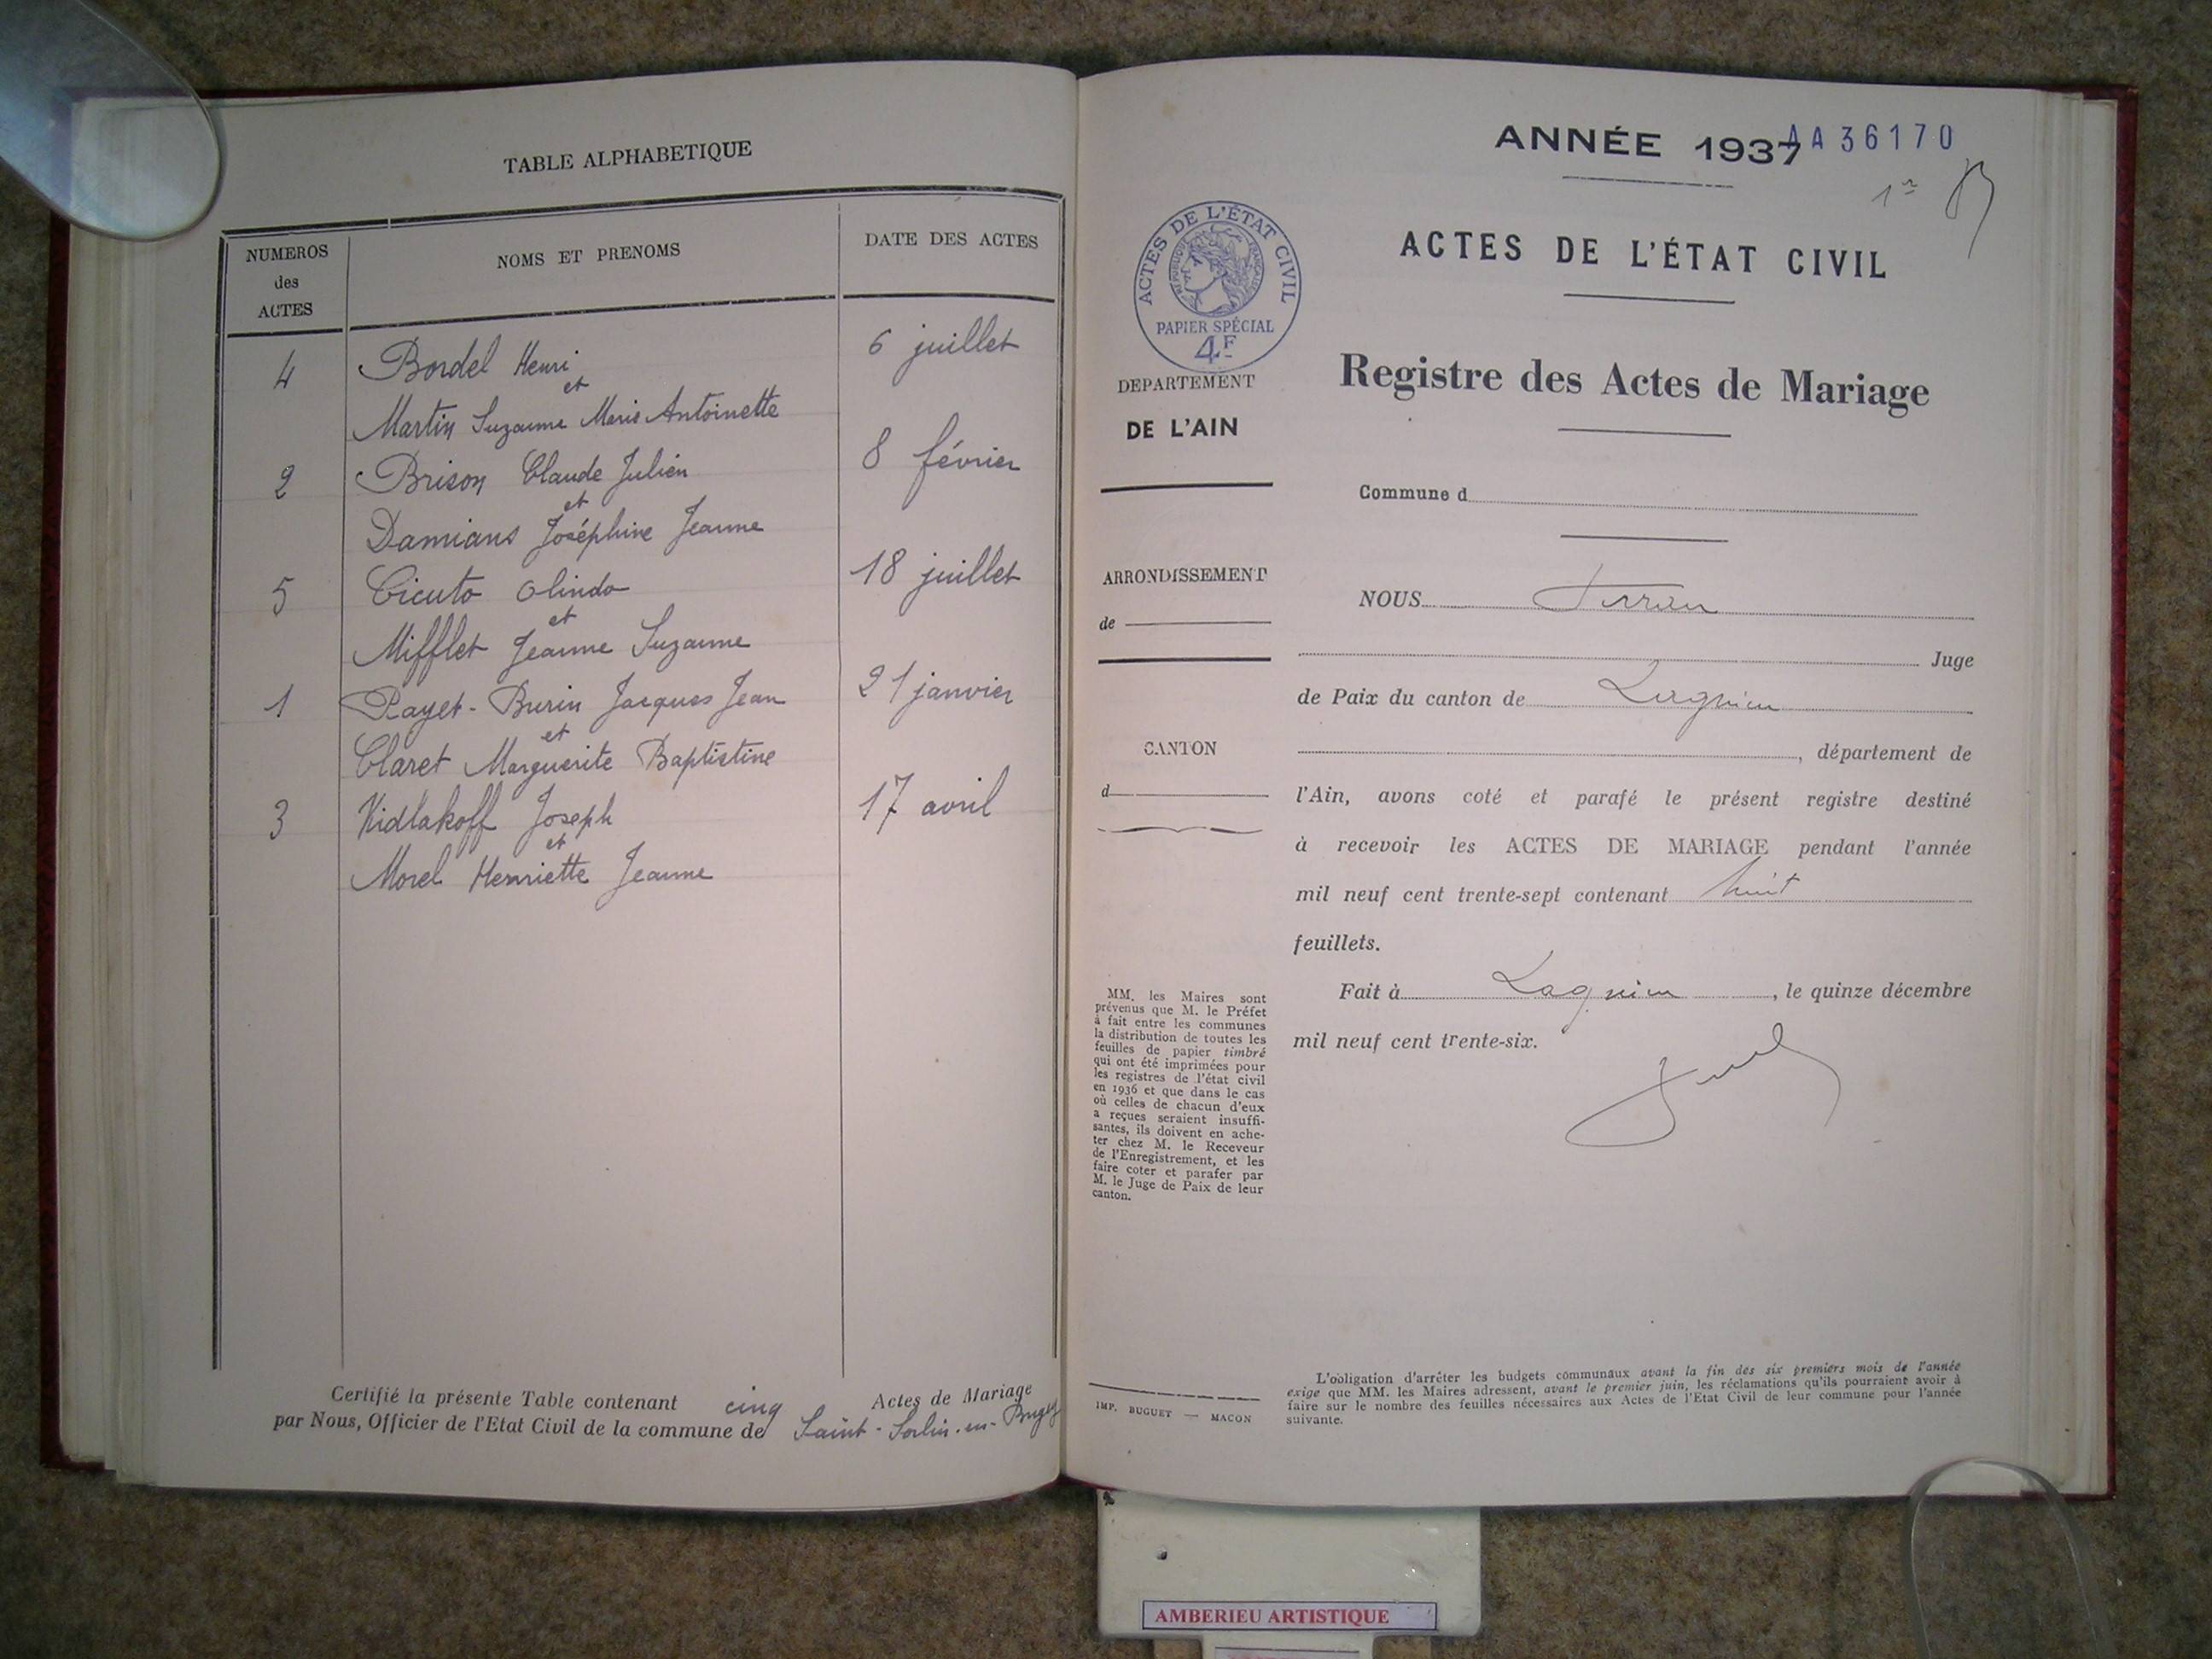 TABLE ALPHABETIQUE
NUMEROS
des
ACTES
NOMS ET PRENOMS
DATE DES ACTES
4 Bordel Henri 6 juillet
et
Martin Suzanne Marie Antoinette
2 Brison Claude Julien 8 février
et
Damians Joséphine Jeanne
5 Cicuto Olindo 18 juillet
et
Mifflet Jeanne Suzanne
1 Payet-Burin Jacques Jean 21 janvier
et
Claret Marguerite Baptistine
3 Kidlakoff Joseph 17 avril
et
Morel Henriette Jeanne
Certifié la présente Table contenant cinq Actes de Mariage
par Nous, Officier de l'Etat Civil de la commune de Saint-Sorlin-en-Bugey
ANNÉE 1937
AA36170
ACTES DE L'ÉTAT CIVIL
RÉPUBLIQUE FRANÇAISE
PAPIER SPÉCIAL
4F
ACTES DE L'ÉTAT CIVIL
Registre des Actes de Mariage
DEPARTEMENT
DE L'AIN
Commune d
ARRONDISSEMENT
de
NOUS
Juge
de Paix du canton de Lagnieu
CANTON
d
, département de
l'Ain, avons coté et parafé le présent registre destiné
à recevoir les ACTES DE MARIAGE pendant l'année
mil neuf cent trente-sept contenant huit
feuillets.
Fait à Lagnieu, le quinze décembre
mil neuf cent trente-six.
MM. les Maires sont
prévenus que M. le Préfet
à fait entre les communes
la distribution de toutes les
feuilles de papier timbré
qui ont été imprimées pour
les registres de l'état civil
en 1936 et que dans le cas
où celles de chacun d'eux
a reçues seraient insuffi-
santes, ils doivent en ache-
ter chez M. le Receveur
de l'Enregistrement, et les
faire coter et parafer par
M. le Juge de Paix de leur
canton.
IMP. BUGUET — MACON
L'obligation d'arrêter les budgets communaux avant la fin des six premiers mois de l'année
exige que MM. les Maires adressent, avant le premier juin, les réclamations qu'ils pourraient avoir à
faire sur le nombre des feuilles nécessaires aux Actes de l'Etat Civil de leur commune pour l'année
suivante.
AMBERIEU ARTISTIQUE